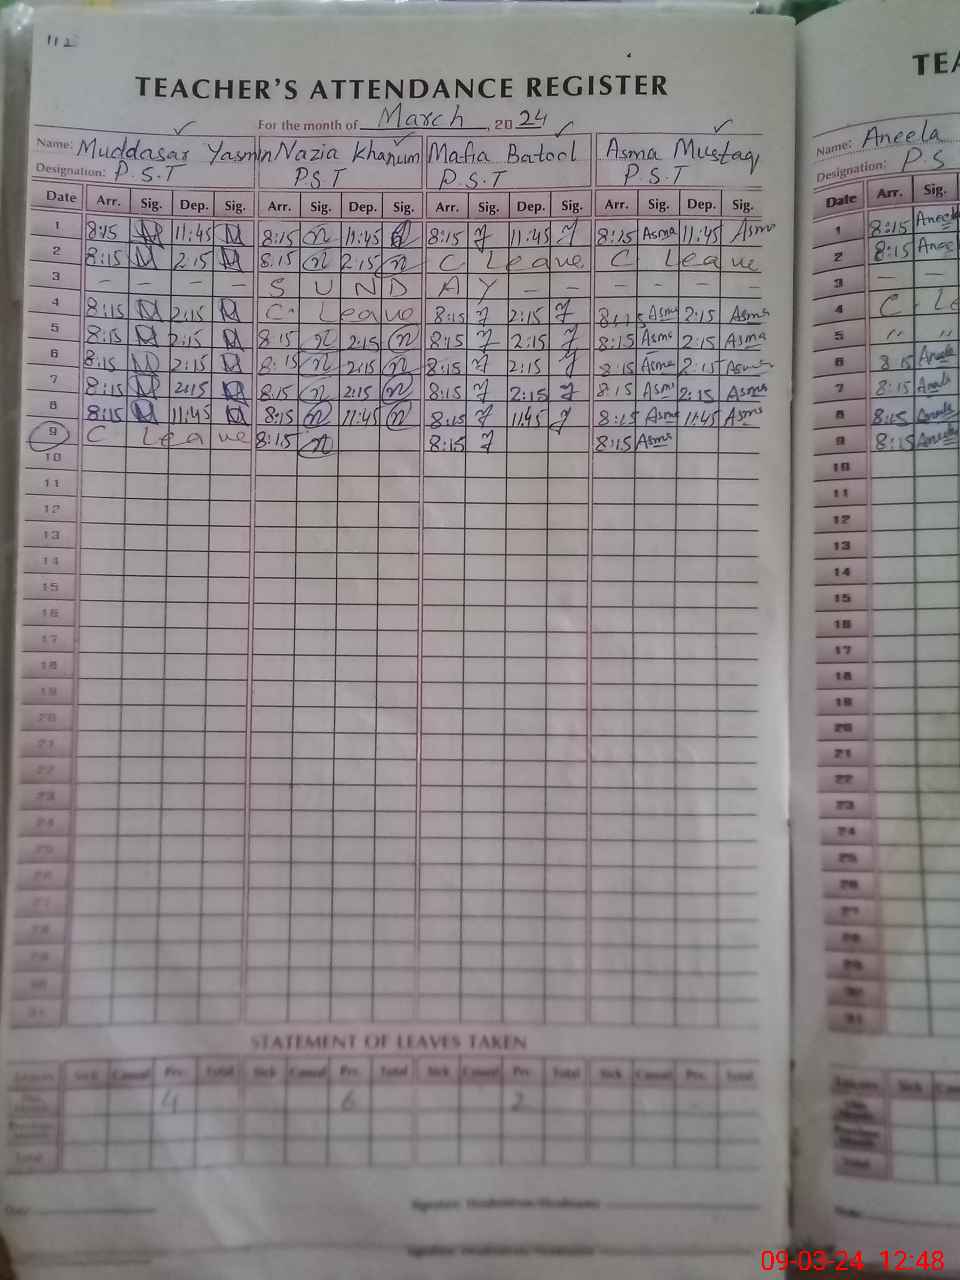 112
TEACHER'S ATTENDANCE REGISTER TEA
For the month of March, 2024
Name: Muddasar Yasmin Nazia Khanum Mafia Batool Asma Mustaq Name: Aneela
Designation: P.S.T P.S.T P.S.T P.S.T Designation: P.S
Date Arr. Sig. Dep. Sig. Arr. Sig. Dep. Sig. Arr. Sig. Dep. Sig. Arr. Sig. Dep. Sig. Date Arr. Sig.
1 8:15 11:45 8:15 11:45 8:15 11:45 8:15 Asma 11:45 Asma 1 8:15
2 8:15 2:15 8:15 2:15 C Leave C Leave 2 8:15
3 - - - - S U N D A Y - - - - - - 3 - -
4 8:15 2:15 C. Leave 8:15 2:15 8:15 Asma 2:15 Asma 4 C. Le
5 8:15 2:15 8:15 2:15 8:15 2:15 8:15 Asma 2:15 Asma 5 " "
6 8:15 2:15 8:15 2:15 8:15 2:15 8:15 Asma 2:15 Asma 6 8:15
7 8:15 2:15 8:15 2:15 8:15 2:15 8:15 Asma 2:15 Asma 7 8:15
8 8:15 11:45 8:15 11:45 8:15 11:45 8:15 Asma 11:45 Asma 8 8:15
9 C Leave 8:15 8:15 8:15 Asma 9 8:15
10 10
11 11
12 12
13 13
14 14
15 15
16 16
17 17
18 18
19 19
20 20
21 21
22 22
23 23
24 24
25 25
26 26
27 27
28 28
29 29
30 30
31 31
STATEMENT OF LEAVES TAKEN
Leaves Sick Casual Prv. Total Sick Casual Prv. Total Sick Casual Prv. Total Sick Casual Prv. Total Leaves Sick
4 6 2
Total Total
Date
09-03-24 12:48